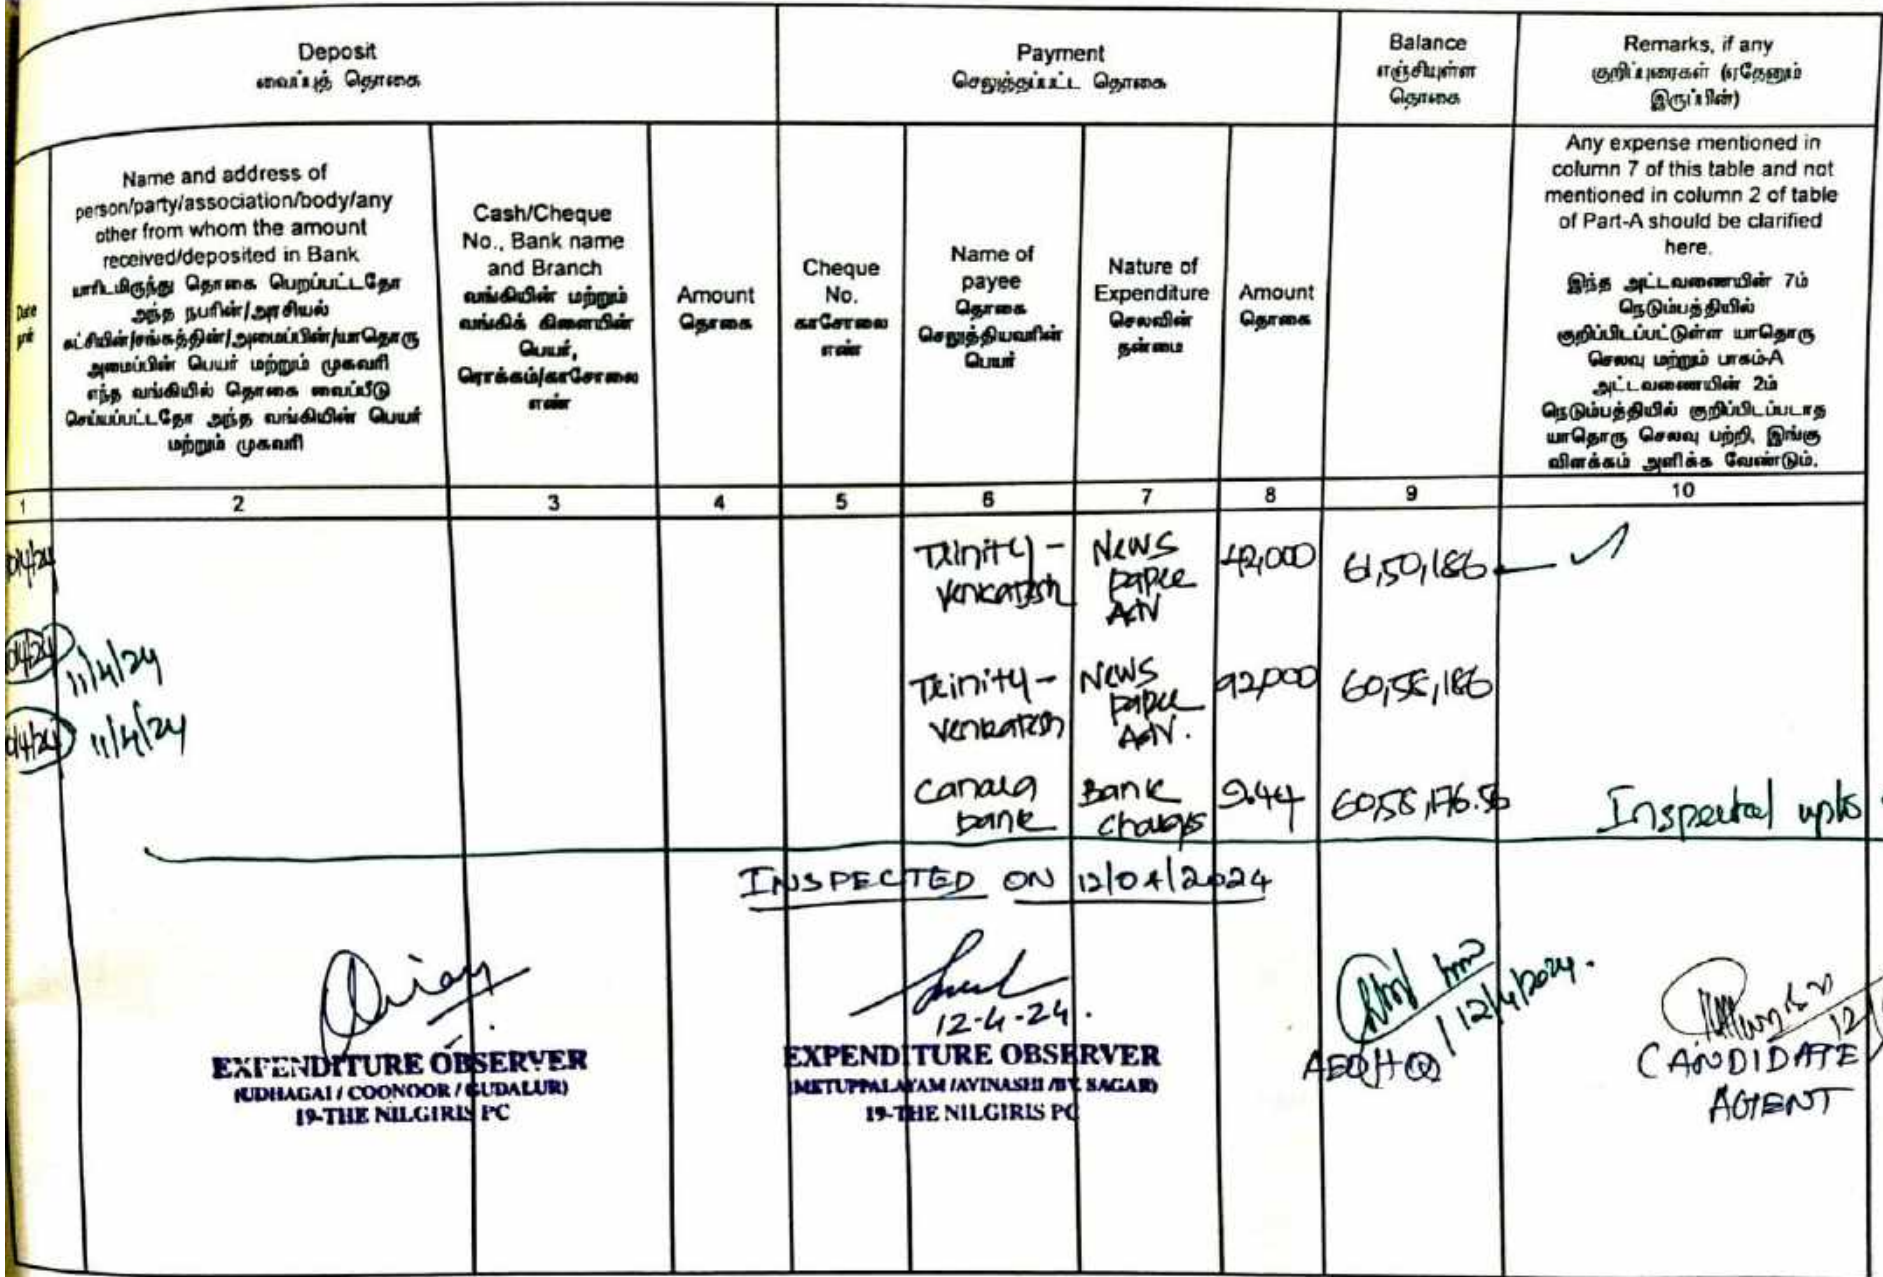 Deposit
வைப்புத் தொகை
Payment
செலுத்தப்பட்ட தொகை
Balance
எஞ்சியுள்ள
தொகை
Remarks, if any
குறிப்புரைகள் (ஏதேனும்
இருப்பின்)
Date
நாள்
Name and address of
person/party/association/body/any
other from whom the amount
received/deposited in Bank
யாரிடமிருந்து தொகை பெறப்பட்டதோ
அந்த நபரின்/அரசியல்
கட்சியின்/சங்கத்தின்/அமைப்பின்/யாதொரு
அமைப்பின் பெயர் மற்றும் முகவரி
எந்த வங்கியில் தொகை வைப்பீடு
செய்யப்பட்டதோ அந்த வங்கியின் பெயர்
மற்றும் முகவரி
Cash/Cheque
No., Bank name
and Branch
வங்கியின் மற்றும்
வங்கிக் கிளையின்
பெயர்,
ரொக்கம்/காசோலை
எண்
Amount
தொகை
Cheque
No.
காசோலை
எண்
Name of
payee
தொகை
செலுத்தியவரின்
பெயர்
Nature of
Expenditure
செலவின்
தன்மை
Amount
தொகை
Any expense mentioned in
column 7 of this table and not
mentioned in column 2 of table
of Part-A should be clarified
here.
இந்த அட்டவணையின் 7ம்
நெடும்பத்தியில்
குறிப்பிடப்பட்டுள்ள யாதொரு
செலவு மற்றும் பாகம்-A
அட்டவணையின் 2ம்
நெடும்பத்தியில் குறிப்பிடப்படாத
யாதொரு செலவு பற்றி, இங்கு
விளக்கம் அளிக்க வேண்டும்.
1 2 3 4 5 6 7 8 9 10
0/4/24 Trinity - News 42,000 61,50,186
Venkatesh paper
Adv
0/4/24 11/4/24 Trinity - News 92,000 60,58,186
Venkatesh paper
Adv.
0/4/24 11/4/24
Canara Bank 9.44 6058,176.56 Inspected upto
bank charges
INSPECTED ON 12/04/2024
12-4-24.
12/4/2024.
12/
EXPENDITURE OBSERVER
(UDHAGAI / COONOOR / GUDALUR)
19-THE NILGIRIS PC
EXPENDITURE OBSERVER
(METUPPALAYAM /AVINASHI /BV. SAGAR)
19-THE NILGIRIS PC
AEO/HQ
CANDIDATE
AGENT